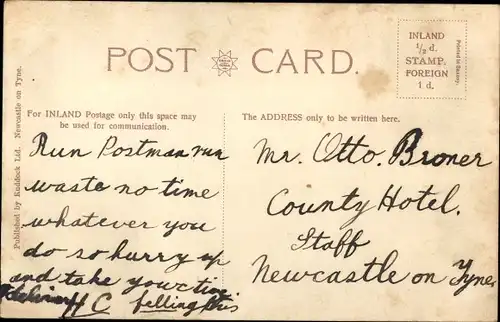 POST CARD.
INLAND
½ d.
STAMP.
FOREIGN
1 d.
Printed in Saxony.
Published by Ruddock Ltd. Newcastle on Tyne.
For INLAND Postage only this space may
be used for communication.
The ADDRESS only to be written here.
Run Postman run
waste no time
whatever you
do so hurry up
and take your
C felling this
Mr. Otto. Broner
County Hotel.
Staff
Newcastle on Tyne